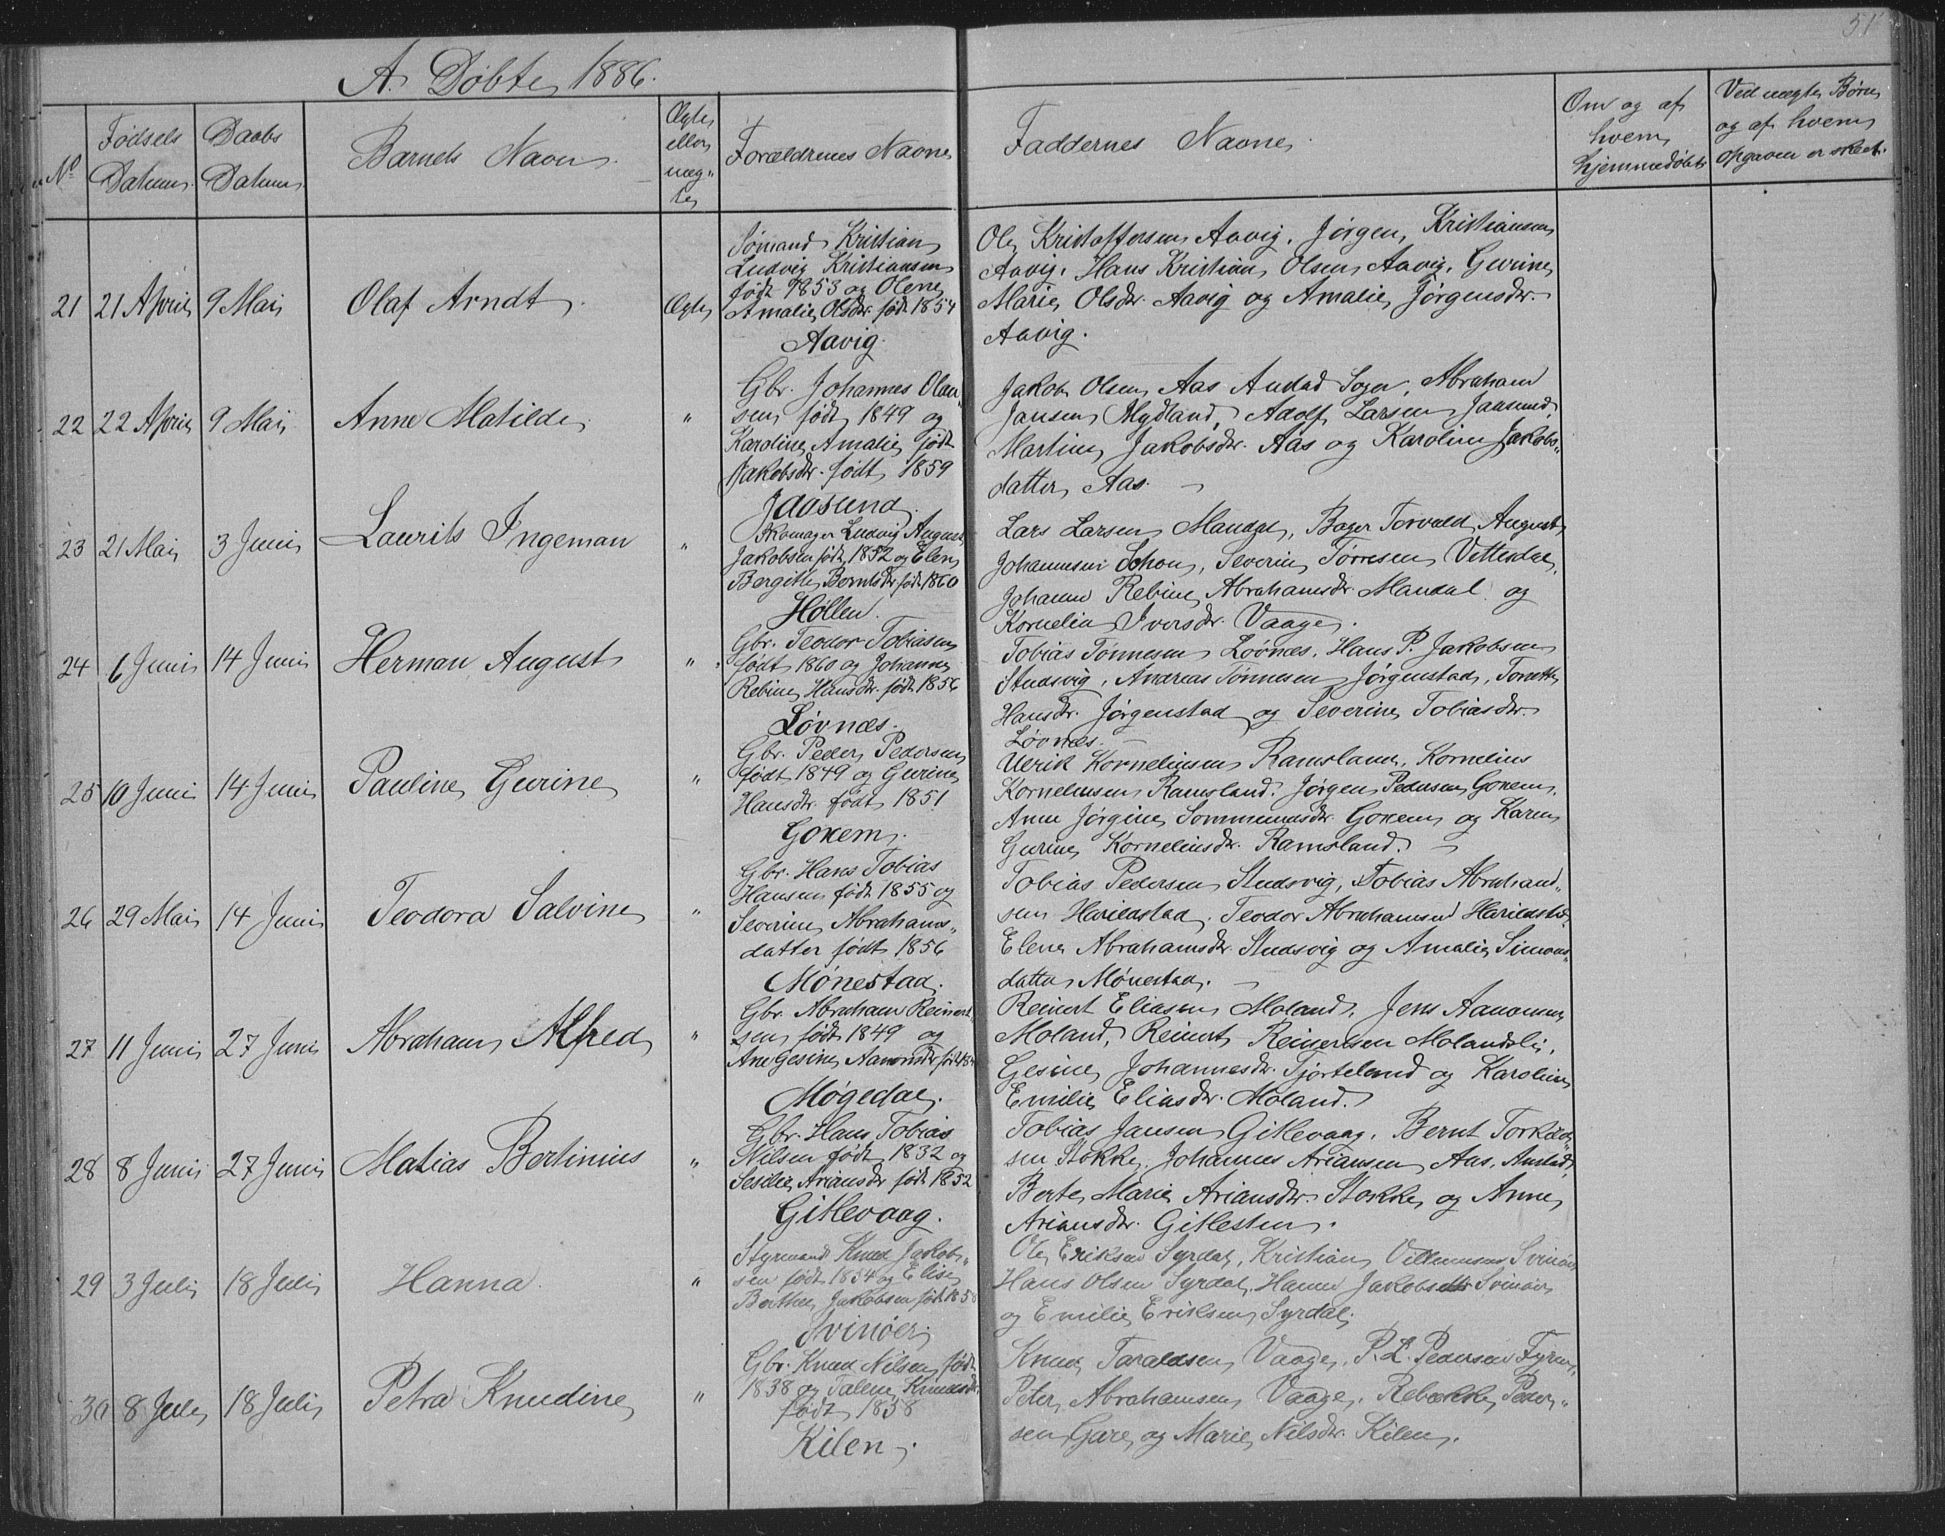 51
A. Døbte 1886.
No
Fødsels Datum.
Daabs Datum.
Barnets Navn.
Ægte eller uæg-te
Forældrenes Navne
Faddernes Navne.
Om og af hvem hjemmedøbt.
Ved uægte Børn og af hvem Opgaven er skeet.
21 21 April 9 Mai Olaf Arndt. Ægte
Sømand Kristian
Ludvig Kristiansen
født 1853 og Olene
Amalie Olsdtr. født 1854
Aavig.
Ole Kristoffersen Aavig, Jørgen Kristiansen
Aavig, Hans Kristian Olsen Aavig, Gurine
Marie Olsdtr. Aavig og Amalie Jørgensdtr.
Aavig.
22 22 April 9 Mai Anne Matilde. "
Gbr. Johannes Olau-
sen født 1849 og
Karoline Amalie
Jakobsdtr. født 1859
Jaasund.
Jakob Olsen Aas Sogn, Abraham
Jansen Mydland, Adolf Larsen Jaasund,
Martine Jakobsdtr. Aas og Karoline Jakobs-
datter Aas.
23 21 Mai 3 Juni Laurits Ingeman "
Skomager Ludvig August
Jakobsen født 1852 og Elen
Bergitte Berntsdtr født 1860
Høllen.
Lars Larsen Mandal, Bager Torvald August
Johannesen Schou, Severin Tørresen Vittesdal,
Johanne Rebine Abrahamsdtr. Mandal og
Kornelia Iversdtr. Vaage.
24 6 Juni 14 Juni Herman August "
Gbr. Teodor Tobiasen
født 1860 og Johanne
Rebine Hansdtr. født 1856
Løvnæs.
Tobias Tønnesen Løvnæs, Hans P. Jakobsen
Studsvig, Andreas Tønnesen Jørgenstad, Tonette
Hansdtr. Jørgenstad og Severine Tobiasdtr.
Løvnæs.
25 10 Juni 14 Juni Pauline Gurine "
Gbr. Peder Pedersen
født 1849 og Gurine
Hansdtr født 1851
Goxem.
Ulrik Korneliusen Ramsland, Kornelius
Korneliusen Ramsland, Jørgen Pedersen Goxem,
Anne Jørgine Goxem og Karen
Gurine Korneliusdtr. Ramsland.
26 29 Mai 14 Juni Teodora Salvine "
Gbr. Hans Tobias
Hansen født 1855 og
Severine Abrahams-
datter født 1856
Mønestad.
Tobias Pedersen Studsvig, Tobias Abraham-
sen Harildstad, Teodor Abrahamsen Harildstad,
Elene Abrahamsdtr. Studsvig og Amalie Simons-
datter Mønestad.
27 11 Juni 27 Juni Abraham Alfred "
Gbr. Abraham Reinert-
sen født 1849 og
Ane Gesine Aanonsdtr født
Møgedal.
Reinert Eliasen Moland, Jens Aanonsen
Moland, Reinert Reinertsen Molandsli,
Gesine Johannesdtr. Tjorteland og Karoline
Emilie Eliasdtr. Moland.
28 8 Juni 27 Juni Matias Bertinius "
Gbr. Hans Tobias
Nilsen født 1832 og
Seselie Ariansdtr født 1852
Gitlevaag.
Tobias Jansen Gitlevaag, Bernt Torkild-
sen Stokke, Johannes Ariansen Aas,
Berte Marie Ariansdtr Stokke og Anne
Ariansdtr. Gitlesten.
29 3 Juli 18 Juli Hanna. "
Styrmand Knud Jakob-
sen født 1854 og Elise
Berthea Jakobsen født 1858
Svinøer.
Ole Eriksen Syrdal, Kristian Villumsen Svinøer,
Hans Olsen Syrdal, Hanne Jakobsdtr Svinøer
og Emilie Eriksen Syrdal.
30 8 Juli 18 Juli Petra Knudine "
Gbr. Knud Nilsen født
1838 og Talene Knudsdtr.
født 1838
Kilen.
Knud Taraldsen Vaage, P. L. Pedersen Fyren,
Peter Abrahamsen Vaage, Rebekka Peder-
sen Gare og Marie Nilsdtr. Kilen.